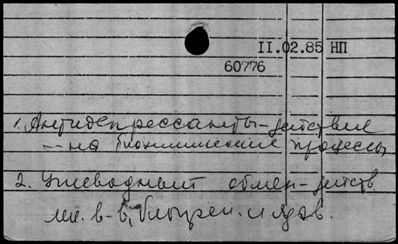 II.02.85 НП
60776
1. Антидепрессанты-действие
-- на биохимические процессы
2. Углеводный обмен-действ
в-в,